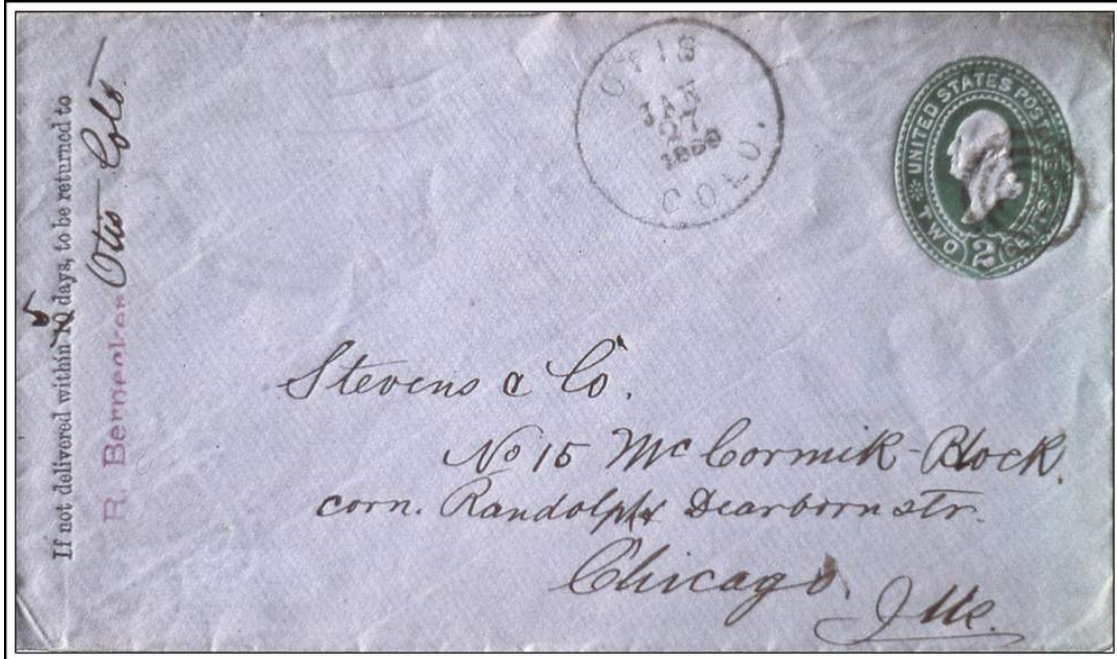 If not delivered within 10 days, to be returned to
5
R. Bernecker Otis Colo.
OTIS
JAN
27
COLO.
UNITED STATES POSTAGE
TWO 2 CENTS
Stevens & Co.
No 15 McCormik-Block.
corn. Randolph & Dearborn str.
Chicago,
Ills.